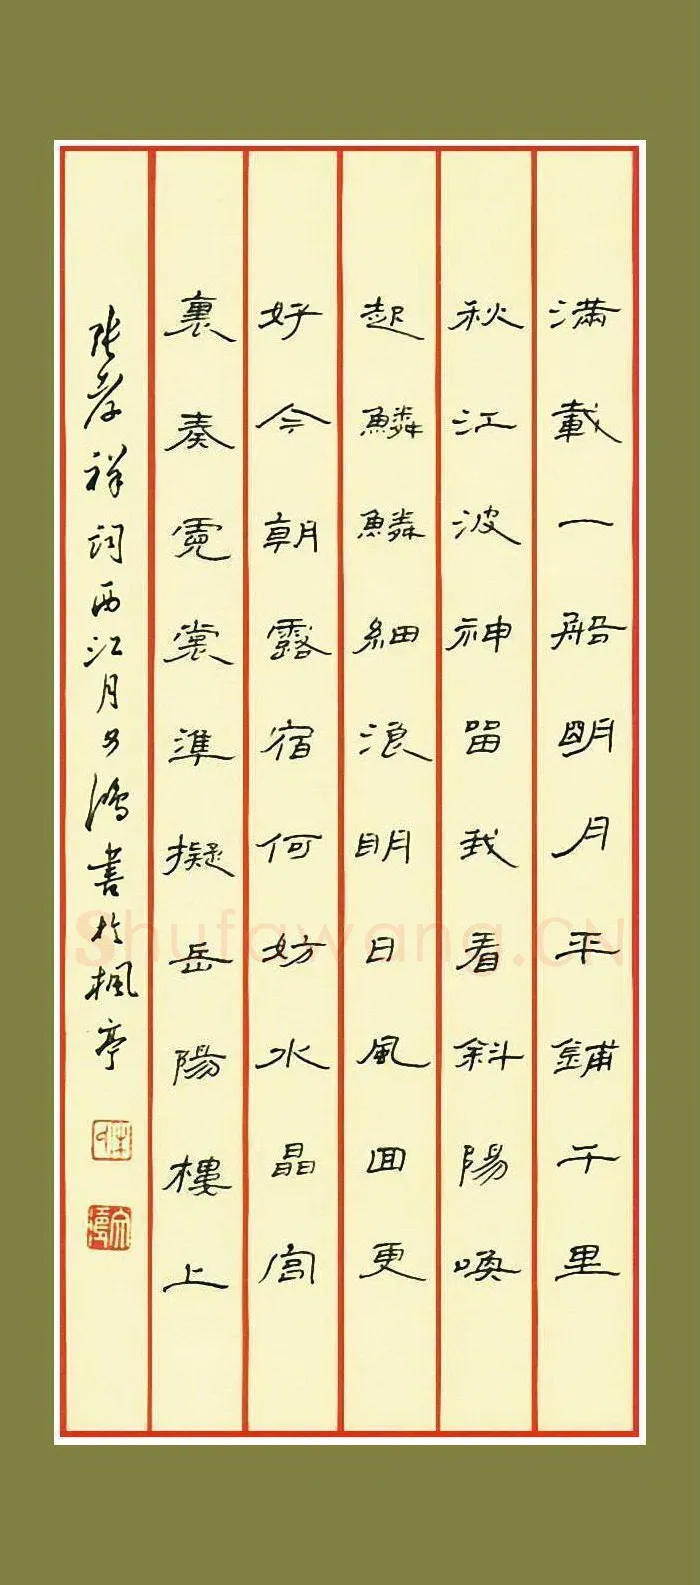 滿載一船明月平鋪千里
秋江波神留我看斜陽喚
起鱗鱗細浪明日風回更
好今朝露宿何妨水晶宮
裏奏霓裳準擬岳陽樓上
張孝祥詞西江月 鴻書於楓亭
Shufawang.CN